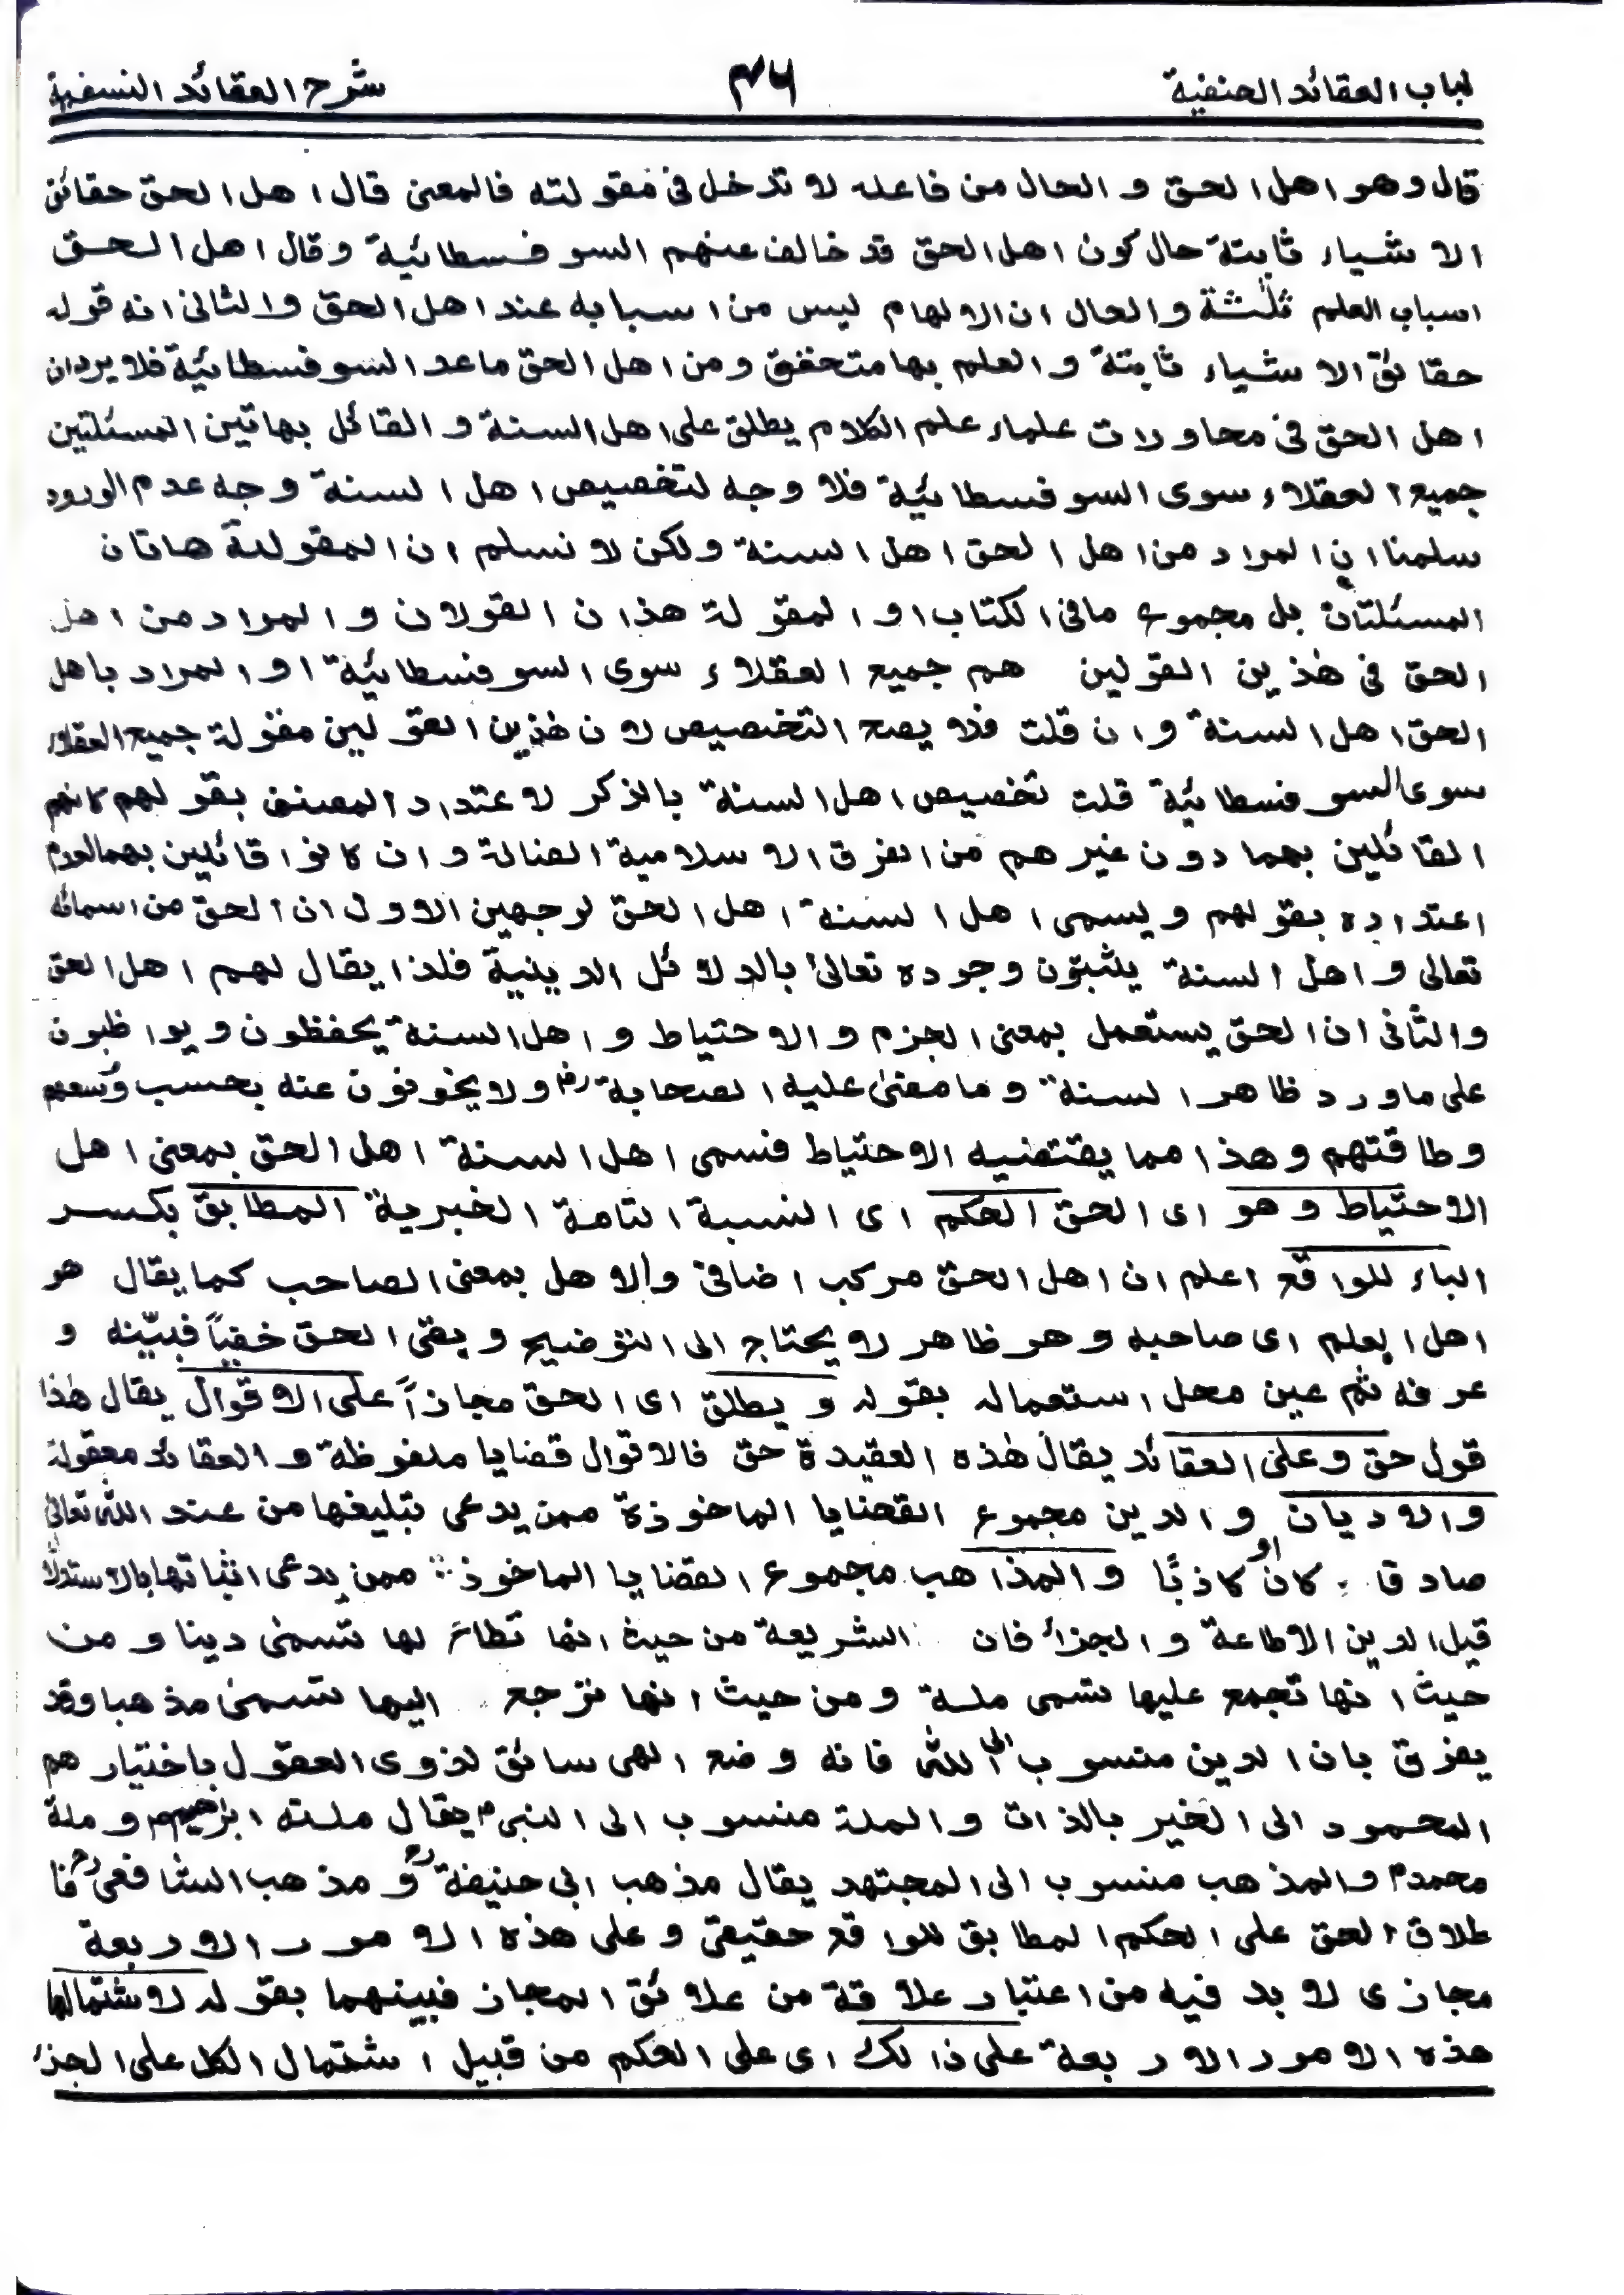 لباب العقائد الحنفية ٣٦ شرح العقائد النسفية
قال وهو اهل الحق و الحال من فاعله لا تدخل فى مقولته فالمعنى قال اهل الحق حقائق
الاشياء ثابتة حال كون اهل الحق قد خالف عنهم السوفسطائية وقال اهل الحق
اسباب العلم ثلٰثة والحال ان الالهام ليس من اسبابه عند اهل الحق والثانى انه قوله
حقائق الاشياء ثابتة و العلم بها متحقق ومن اهل الحق ماعد السوفسطائية فلا يردان
اهل الحق فى محاورات علماء علم الكلام يطلق على اهل السنة و القائل بهاتين المسئلتين
جميع العقلاء سوى السوفسطائية فلا وجه لتخصيص اهل السنة وجه عدم الورود
سلمنا ان المراد من اهل الحق اهل السنة ولكن لا نسلم ان المقولة هاتان
المسئلتان بل مجموع مافى الكتاب او المقولة هذان القولان و المراد من اهل
الحق فى هٰذين القولين هم جميع العقلاء سوى السوفسطائية او المراد باهل
الحق اهل السنة و ان قلت فلا يصح التخصيص لان هٰذين القولين مقولة جميع العقلاء
سوى السوفسطائية قلت تخصيص اهل السنة بالذكر لاعتداد المصنف بقولهم كانهم
القائلين بهما دون غيرهم من الفرق الاسلامية الضالة و ان كانوا قائلين بهما لعدم
اعتداده بقولهم ويسمى اهل السنة اهل الحق لوجهين الاول ان الحق من اسمائه
تعالى و اهل السنة يثبتون وجوده تعالىٰ بالدلائل الدينية فلذا يقال لهم اهل الحق
والثانى ان الحق يستعمل بمعنى الجزم و الاحتياط و اهل السنة يحفظون ويواظبون
على ماورد ظاهر السنة و ما مضىٰ عليه الصحابةرض ولا يخونون عنه بحسب وُسعهم
وطاقتهم وهذا مما يقتضيه الاحتياط فسمى اهل السنة اهل الحق بمعنى اهل
الاحتياط وهو اى الحق الحكم اى النسبة التامة الخبرية المطابق بكسر
الباء للواقع اعلم ان اهل الحق مركب اضافى والاهل بمعنى الصاحب كما يقال هو
اهل العلم اى صاحبه وهو ظاهر لا يحتاج الى التوضيح و بقى الحق خفيًا فبيّنه و
عرفه ثم عين محل استعماله بقوله و يطلق اى الحق مجازاً على الاقوال يقال هٰذا
قول حق وعلى العقائد يقال هٰذه العقيدة حق فالاقوال قضايا ملفوظة و العقائد معقولة
والاديان و الدين مجموع القضايا الماخوذة ممن يدعى تبليغها من عند الله تعالىٰ
صادقا كان او كاذبًا و المذاهب مجموع القضايا الماخوذة ممن يدعى اثباتها بالاستدلال
قيل الدين الاطاعة و الجزاء فان الشريعة من حيث انها تطاع لها تسمىٰ دينا و من
حيث انها تجمع عليها تسمى ملة ومن حيث انها ترجع اليها تسمىٰ مذهبا وقد
يفرق بان الدين منسوب الى الله فانه وضع الهى سائق لذوى العقول باختيارهم
المحمود الى الخير بالذات و الملة منسوب الى النبىم يقال ملته ابرٰهيمم و ملة
محمدم والمذهب منسوب الى المجتهد يقال مذهب ابى حنيفةرح و مذهب الشافعىرح فا
طلاق الحق على الحكم المطابق للواقع حقيقى و على هذه الامور الاربعة
مجازى لا بد فيه من اعتبار علاقة من علائق المجاز فبينهما بقوله لاشتمالها
هذه الامور الاربعة على ذالك اى على الحكم من قبيل اشتمال الكل على الجزء